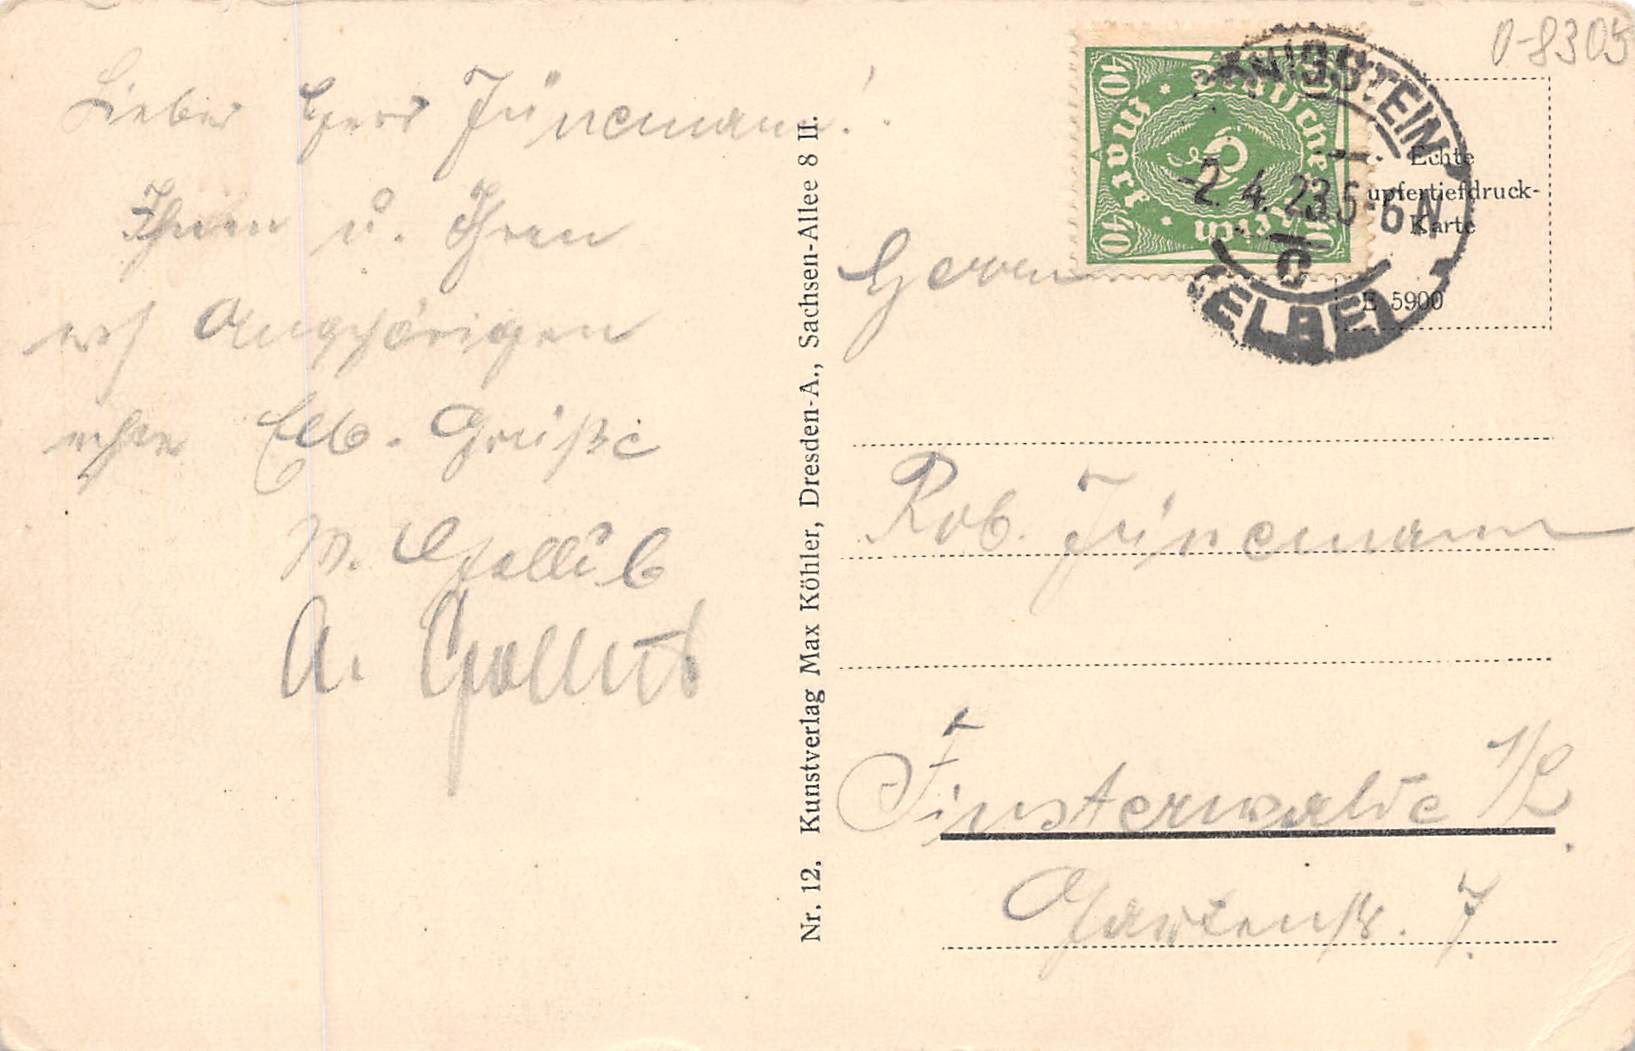 O-8305
Lieber Herr Jünemann!
Ihnen u. Ihren
Angehörigen
Elb-Grüße
W. Gollub
A. Gollub
Nr. 12. Kunstverlag Max Köhler, Dresden-A., Sachsen-Allee 8 II.
Deutsches Reich
40 Mark 40
40 40
KÖNIGSTEIN
-2.4.23.5-6N
C
(ELBE)
Echte
Kupfertiefdruck-
Karte
E 5900
Herrn
Rob. Jünemann
Finsterwalde N/L
Gartenstr. 7